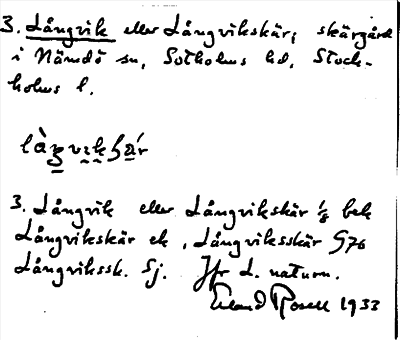 3. Långvik eller Långvikskär, skärgård
i Nämdö sn, Sotholms hd, Stock-
holms l.
3. Långvik eller Långvikskär 1/8 bek
Långvikskär ek, Långviksskär G76
Långvikssk. Sj. Jfr L. naturn.
Erland Rosell 1933